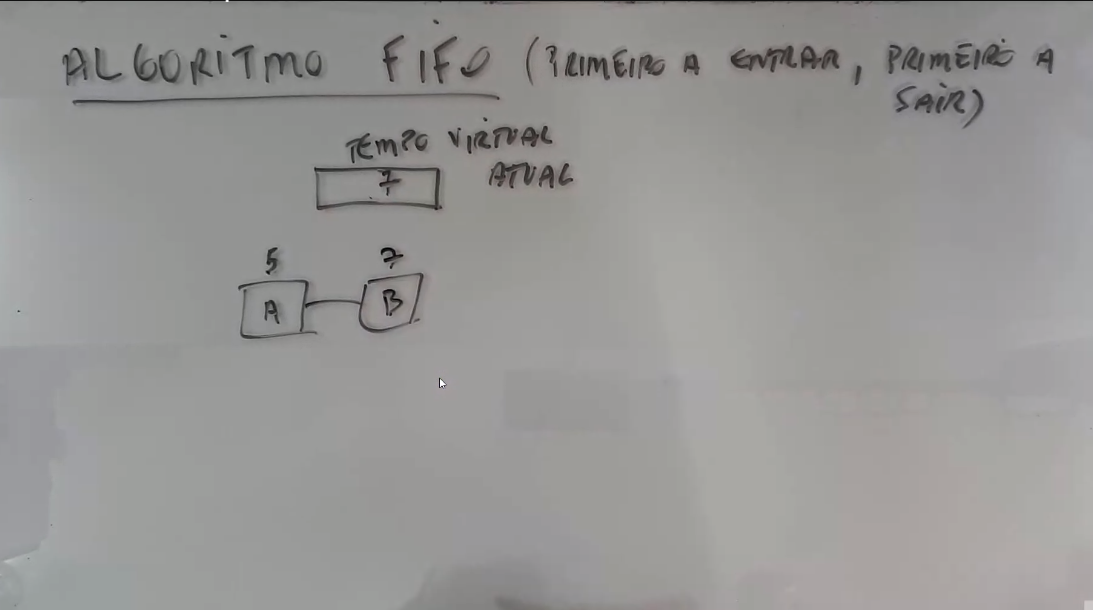 ALGORITMO FIFO (PRIMEIRO A ENTRAR, PRIMEIRO A
SAIR)
TEMPO VIRTUAL
ATUAL
7
5 7
A B